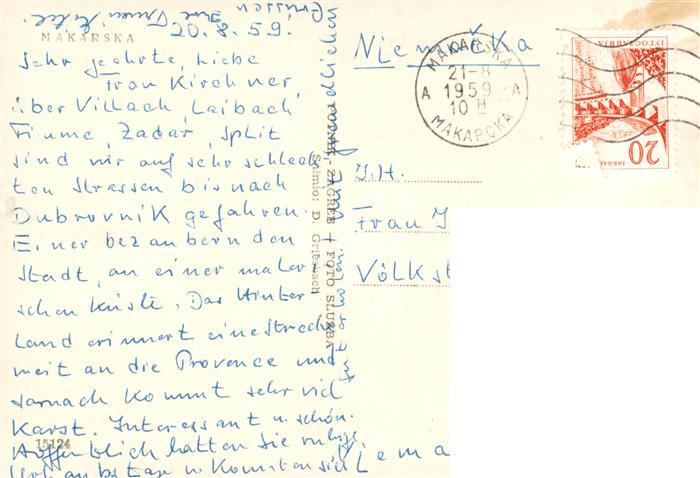 MAKARSKA
20.8.59.
Sehr geehrte, liebe
Frau Kirchner,
über Villach, Laibach,
Fiume, Zadar, Split
sind wir auf sehr schlech
ten Strassen bis nach
Dubrovnik gefahren.
Einer bezaubernden
Stadt, an einer maler
schen Küste. Das Hinter
land erinnert eine Strecke
weit an die Provence und
danach kommt sehr viel
Karst. Interessant u. schön.
Hoffentlich hatten Sie ruhige
mit freundlichen
Grüssen
15124
ZAGREB - FOTO SLUŽBA
Snimio: D. Griesbach
Njemačka
MAKARSKA
21-8
1959
10 H
A A
МАКАРСКА
JUGOSLAVIJA
20
I.H.
Frau I
Völkst